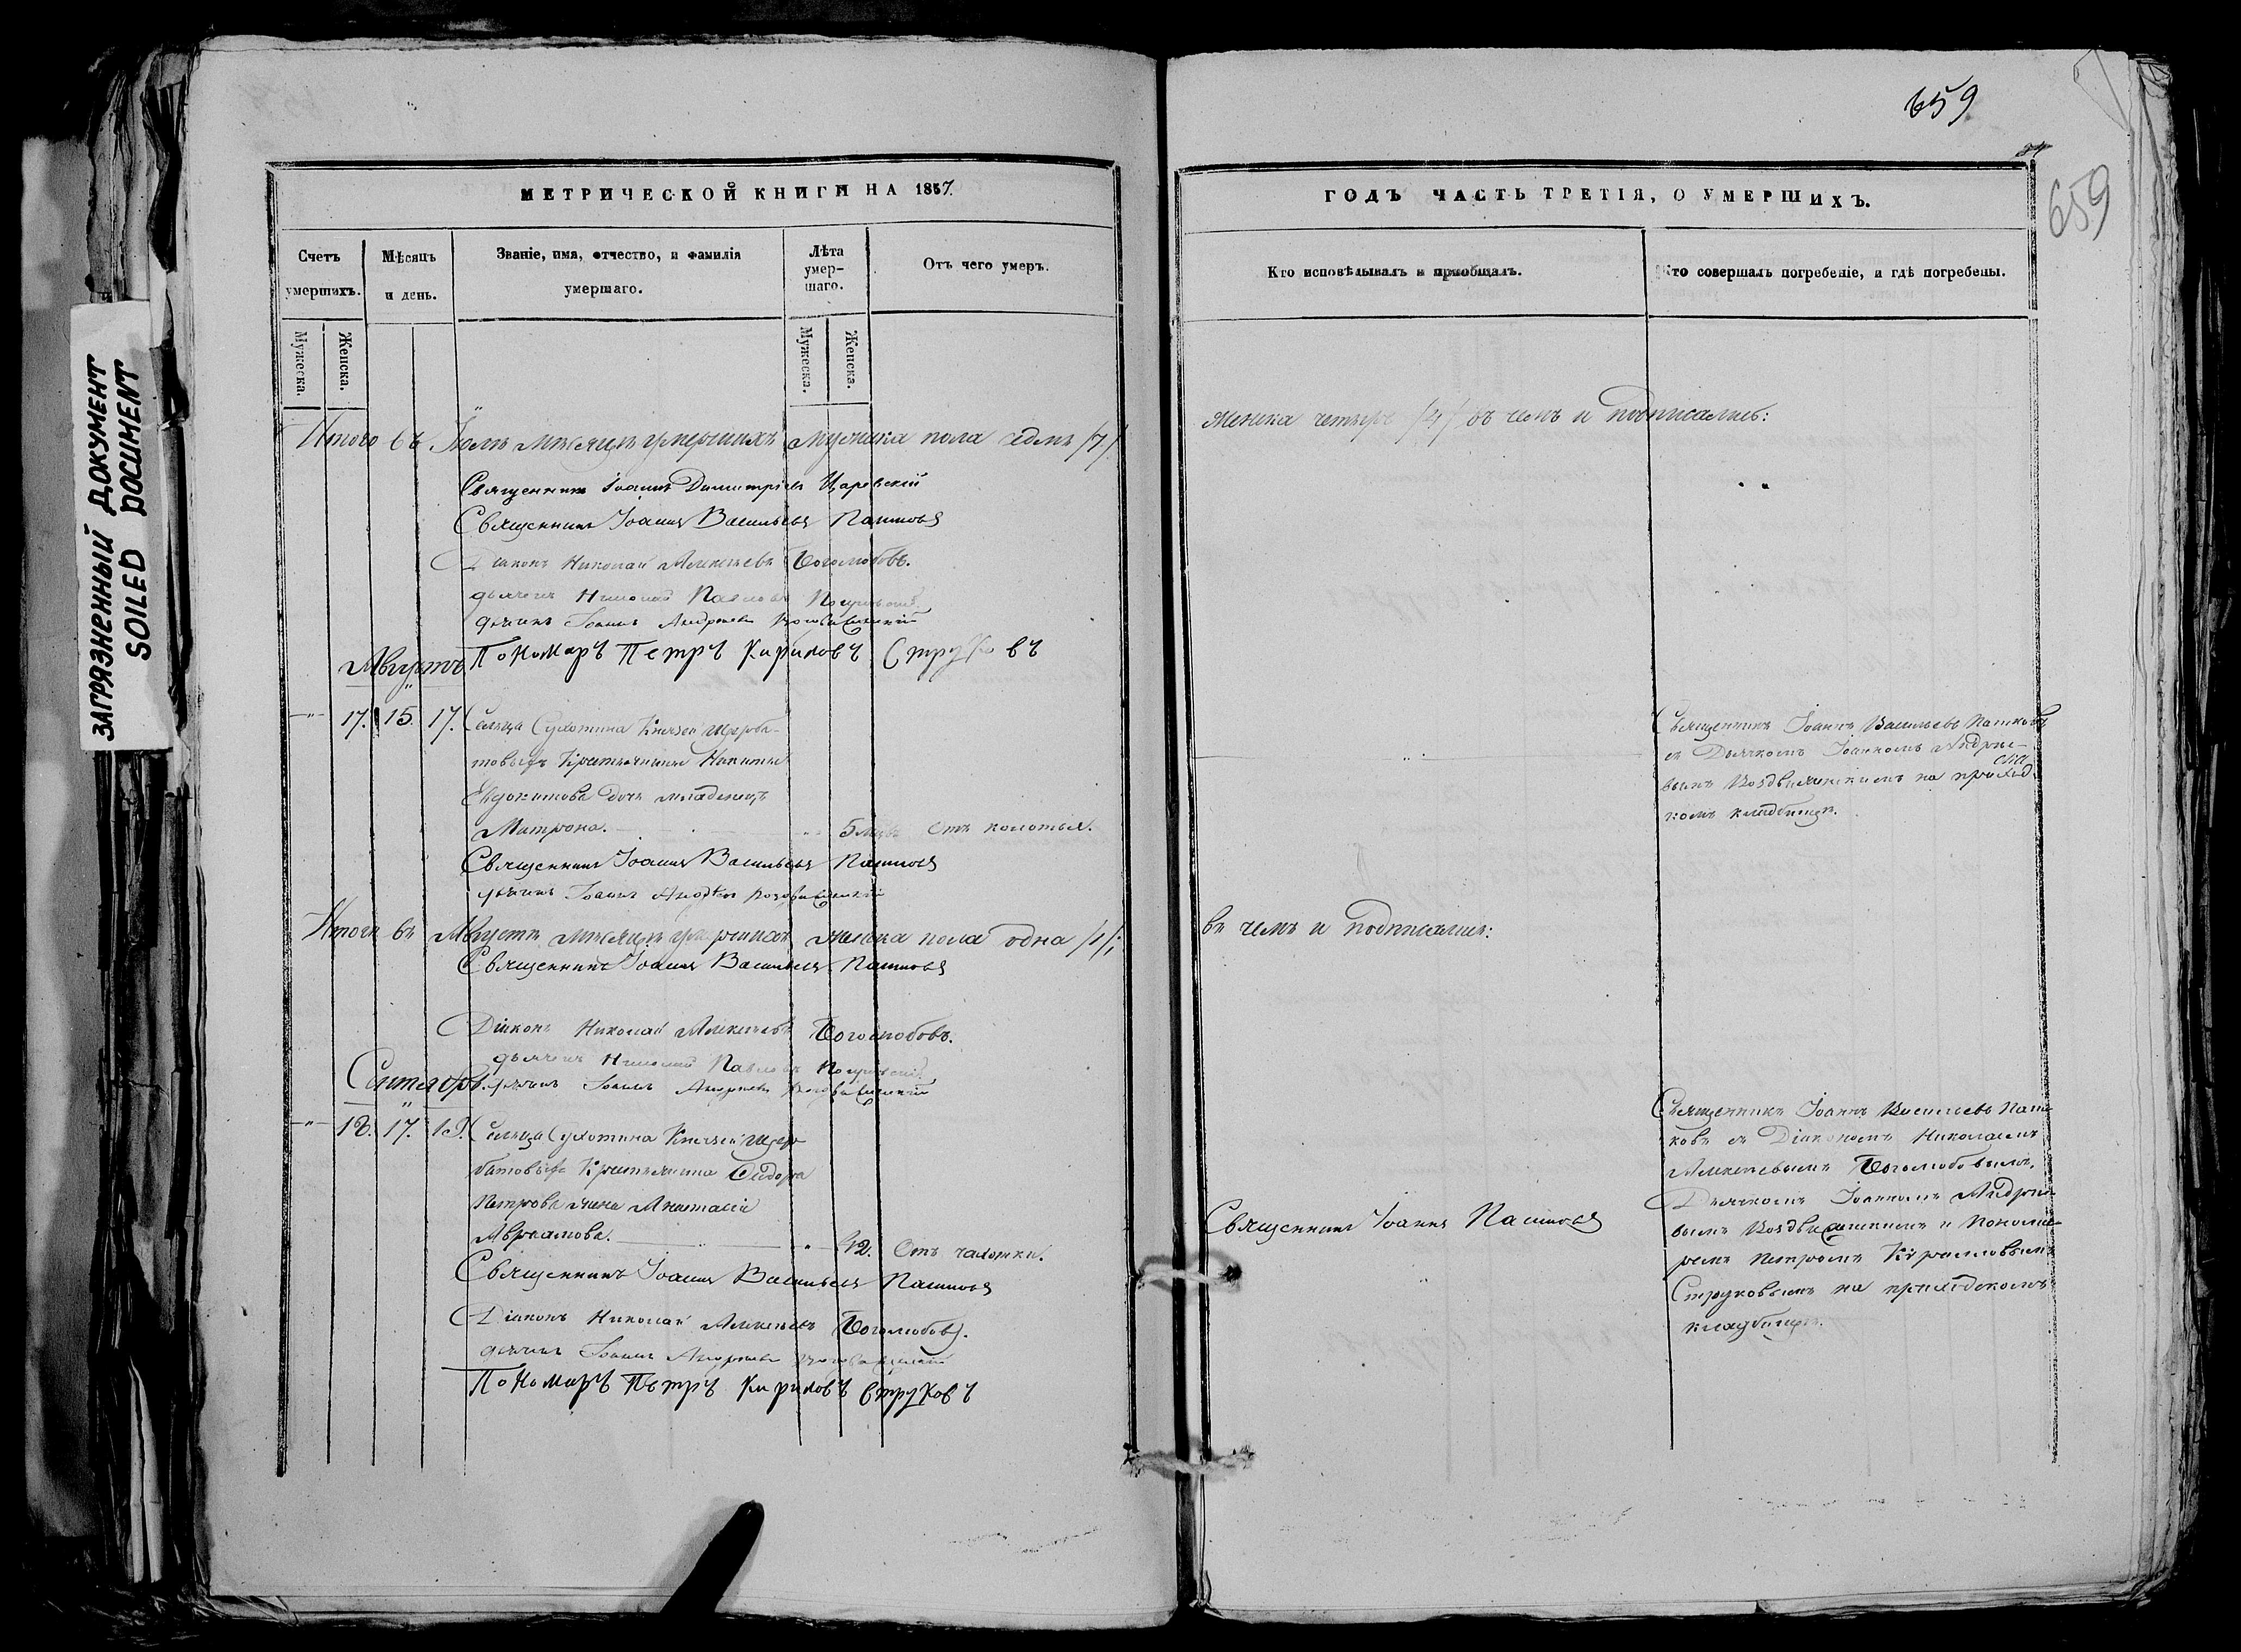 659
659
ЗАГРЯЗНЕННЫЙ ДОКУМЕНТ
SOILED DOCUMENT
МЕТРИЧЕСКОЙ КНИГИ НА 1857.
Счетъ умершихъ.
Мужеска.
Женска.
Мѣсяцъ и день.
Званіе, имя, отчество, и фамилія
умершаго.
Лѣта умер-
шаго.
Мужеска.
Женска.
Отъ чего умеръ.
Итого въ Іюлѣ мѣсяцѣ умершихъ мужеска пола седмь /7/
Священникъ Іоаннъ Димитріевъ Царевскій
Священникъ Іоаннъ Васильевъ Пашковъ
Діаконъ Николай Алексѣевъ Боголюбовъ.
дьячекъ Николай Павловъ
дьячекъ Іоаннъ Андреевъ Воздвиженскій
Пономарь Петръ Кириловъ Струковъ
Августъ
17. 15. 17. Сельца Сухотина Князей Щерба-
товыхъ Крестьянина Никиты
Евдокимова дочь младенецъ
Матрона. 5 мцъ Отъ колотья.
Священникъ Іоаннъ Васильевъ Пашковъ
дьячекъ Іоаннъ Андреевъ Воздвиженскій
Итого въ Августѣ мѣсяцѣ умершихъ женска пола одна /1/
Священникъ Іоаннъ Васильевъ Пашковъ
Діаконъ Николай Алексѣевъ Боголюбовъ.
дьячекъ Николай Павловъ
Сентябрь.
дьячекъ Іоаннъ Андреевъ Воздвиженскій
18. 17. 19. Сельца Сухотина Князей Щер-
батовыхъ Крестьянина Сидора
Петрова жена Анастасія
Авраамова. 42. Отъ чахотки.
Священникъ Іоаннъ Васильевъ Пашковъ
Діаконъ Николай Алексѣевъ Боголюбовъ.
дьячекъ Іоаннъ Андреевъ Воздвиженскій
Пономарь Петръ Кириловъ Струковъ
ГОДЪ ЧАСТЬ ТРЕТІЯ, О УМЕРШИХЪ.
Кто исповѣдывалъ и пріобщалъ.
Кто совершалъ погребеніе, и гдѣ погребены.
женска четыре /4/ въ чемъ и подписались:
Священникъ Іоаннъ Васильевъ Пашковъ
съ Дьячкомъ Іоанномъ Андрее-
вымъ Воздвиженскимъ на приход-
скомъ кладбищѣ.
въ чемъ и подписались:
Священникъ Іоаннъ Пашковъ
Священникъ Іоаннъ Васильевъ Паш-
ковъ съ Діакономъ Николаемъ
Алексѣевымъ Боголюбовымъ,
Дьячкомъ Іоанномъ Андрее-
вымъ Воздвиженскимъ и Понома-
ремъ Петромъ Кирилловымъ
Струковымъ на приходскомъ
кладбищѣ.